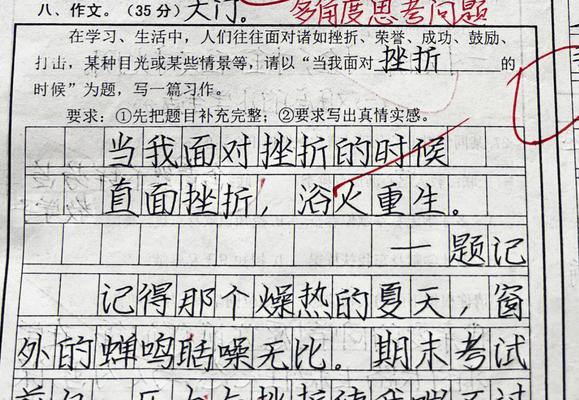 八、作文。（35分）大门。 多角度思考问题
在学习、生活中，人们往往面对诸如挫折、荣誉、成功、鼓励、
打击，某种目光或某些情景等，请以“当我面对 挫折 的
时候”为题，写一篇习作。
要求：①先把题目补充完整；②要求写出真情实感。
当我面对挫折的时候
直面挫折，浴火重生。
——题记
记得那个燥热的夏天，窗
外的蝉鸣聒噪无比。期末考试